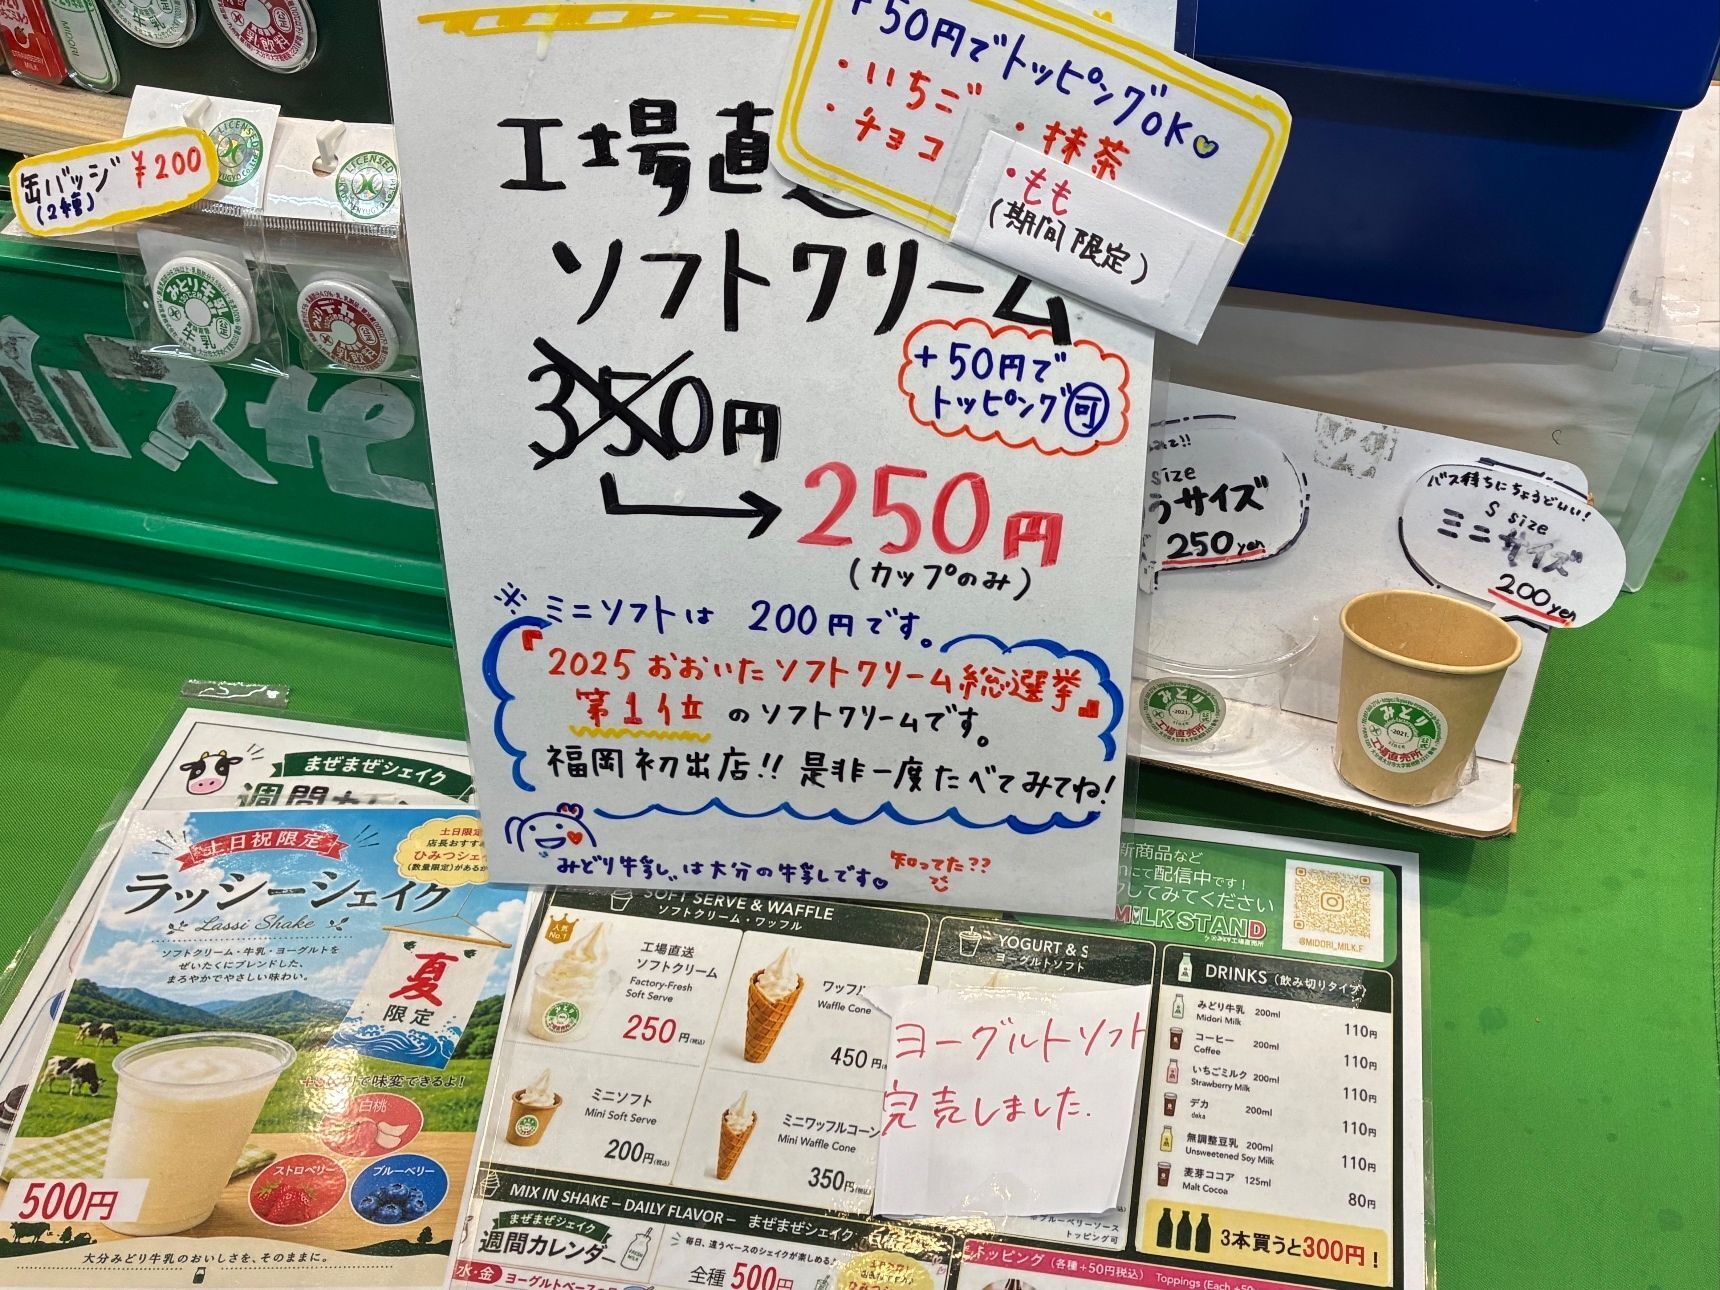 STRAWBERRY MILK
MIDORI
乳飲料
缶バッジ ¥200
(2種)
LICENSED
LICENSED
みどり牛乳
牛乳
みどりデカ
乳飲料
バス
+50円でトッピングOK
・いちご
・チョコ
・抹茶
・もも
(期間限定)
工場直
ソフトクリーム
+50円で
トッピング可
350円
250円
(カップのみ)
※ミニソフトは 200円です。
『2025おおいたソフトクリーム総選挙』
第1位 のソフトクリームです。
福岡初出店!! 是非一度たべてみてね!
みどり牛乳は大分の牛乳です
知ってた??
size
サイズ
250yen
バス待ちにちょうどいい!
S size
ミニサイズ
200yen
みどり
-2021-
工場直売所
みどり
-2021-
工場直売所
まぜまぜシェイク
週間カレン
土日祝限定
土日限定
店長おすすめ
ひみつシェイ
(数量限定)があるか
ラッシーシェイク
Lassi Shake
ソフトクリーム・牛乳・ヨーグルトを
ぜいたくにブレンドした、
まろやかでやさしい味わい。
夏
限定
円で味変できるよ!
白桃
ストロベリー
ブルーベリー
500円
大分みどり牛乳のおいしさを、そのままに。
SOFT SERVE & WAFFLE
ソフトクリーム・ワッフル
人気
No.1
工場直送
ソフトクリーム
Factory-Fresh
Soft Serve
250円(税込)
ワッフル
Waffle Cone
450円
ミニソフト
Mini Soft Serve
200円(税込)
ミニワッフルコーン
Mini Waffle Cone
350円
YOGURT & S
ヨーグルトソフト
ヨーグルトソフト
完売しました.
※ブルーベリーソース
トッピング可
新商品など
にて配信中です!
してみてください
MILK STAND
みどり工場直売所
@MIDORI_MILK.F
DRINKS (飲み切りタイプ)
みどり牛乳 200ml
Midori Milk
110円
コーヒー 200ml
Coffee
110円
いちごミルク 200ml
Strawberry Milk
110円
デカ 200ml
deka
110円
無調整豆乳 200ml
Unsweetened Soy Milk
110円
麦芽ココア 125ml
Malt Cocoa
80円
3本買うと300円!
MIX IN SHAKE – DAILY FLAVOR – まぜまぜシェイク
まぜまぜシェイク
週間カレンダー
毎日、違うベースのシェイクが楽しめる
全種 500円
水・金 ヨーグルトベースの
トッピング (各種+50円税込) Toppings (Each +50